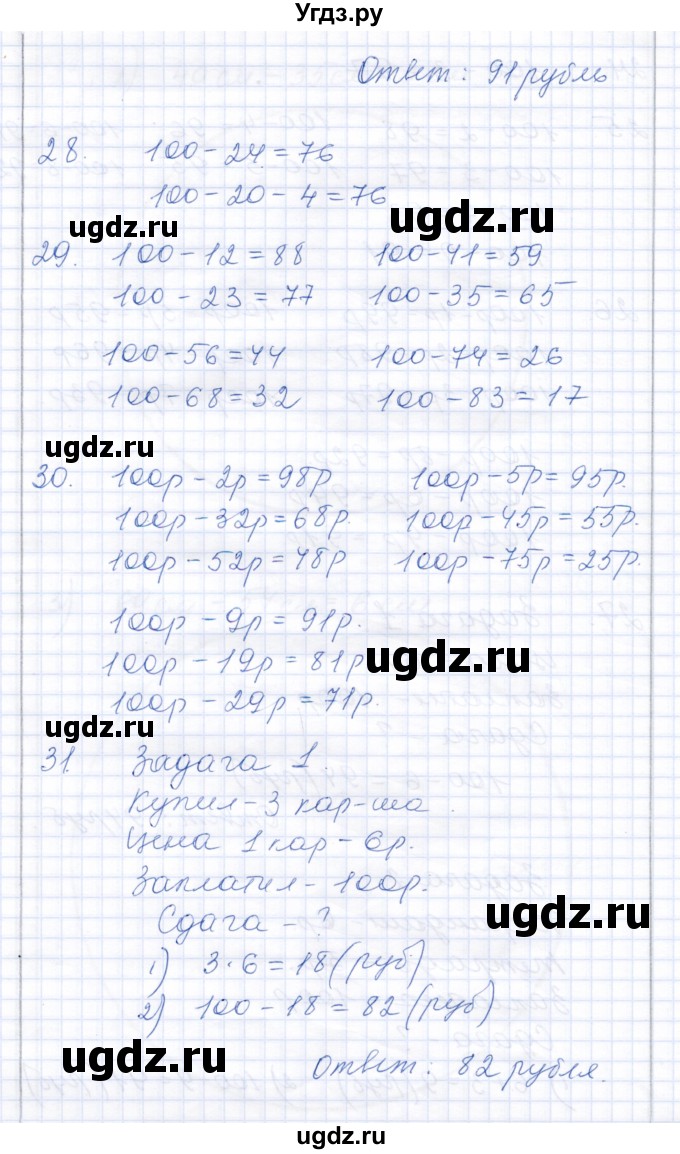 Угдз.ру
Ответ: 91 рубль
28. 100-24=76
100-20-4=76
ugdz.ru ugdz.ru
29. 100-12=88 100-41=59
100-23=77 100-35=65
100-56=44 100-74=26
100-68=32 100-83=17
ugdz.ru
30. 100р-2р=98р 100р-5р=95р.
100р-32р=68р. 100р-45р=55р.
100р-52р=48р 100р-75р=25р.
100р-9р=91р.
100р-19р=81р ugdz.ru
100р-29р=71р.
ugdz.ru
31. Задача 1.
Купил-3 кар-ша.
Цена 1 кар-6р.
Заплатил-100р.
Сдача-? ugdz.ru
1) 3·6=18(руб)
2) 100-18=82(руб)
ugdz.ru
Ответ: 82 рубля.
ugdz.ru